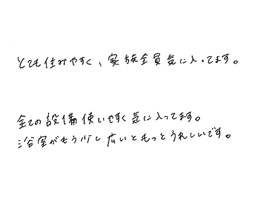 とても住みやすく、家族全員気に入ってます。
全ての設備使いやすく気に入ってます。
浴室がもう少し広いともっとうれしいです。